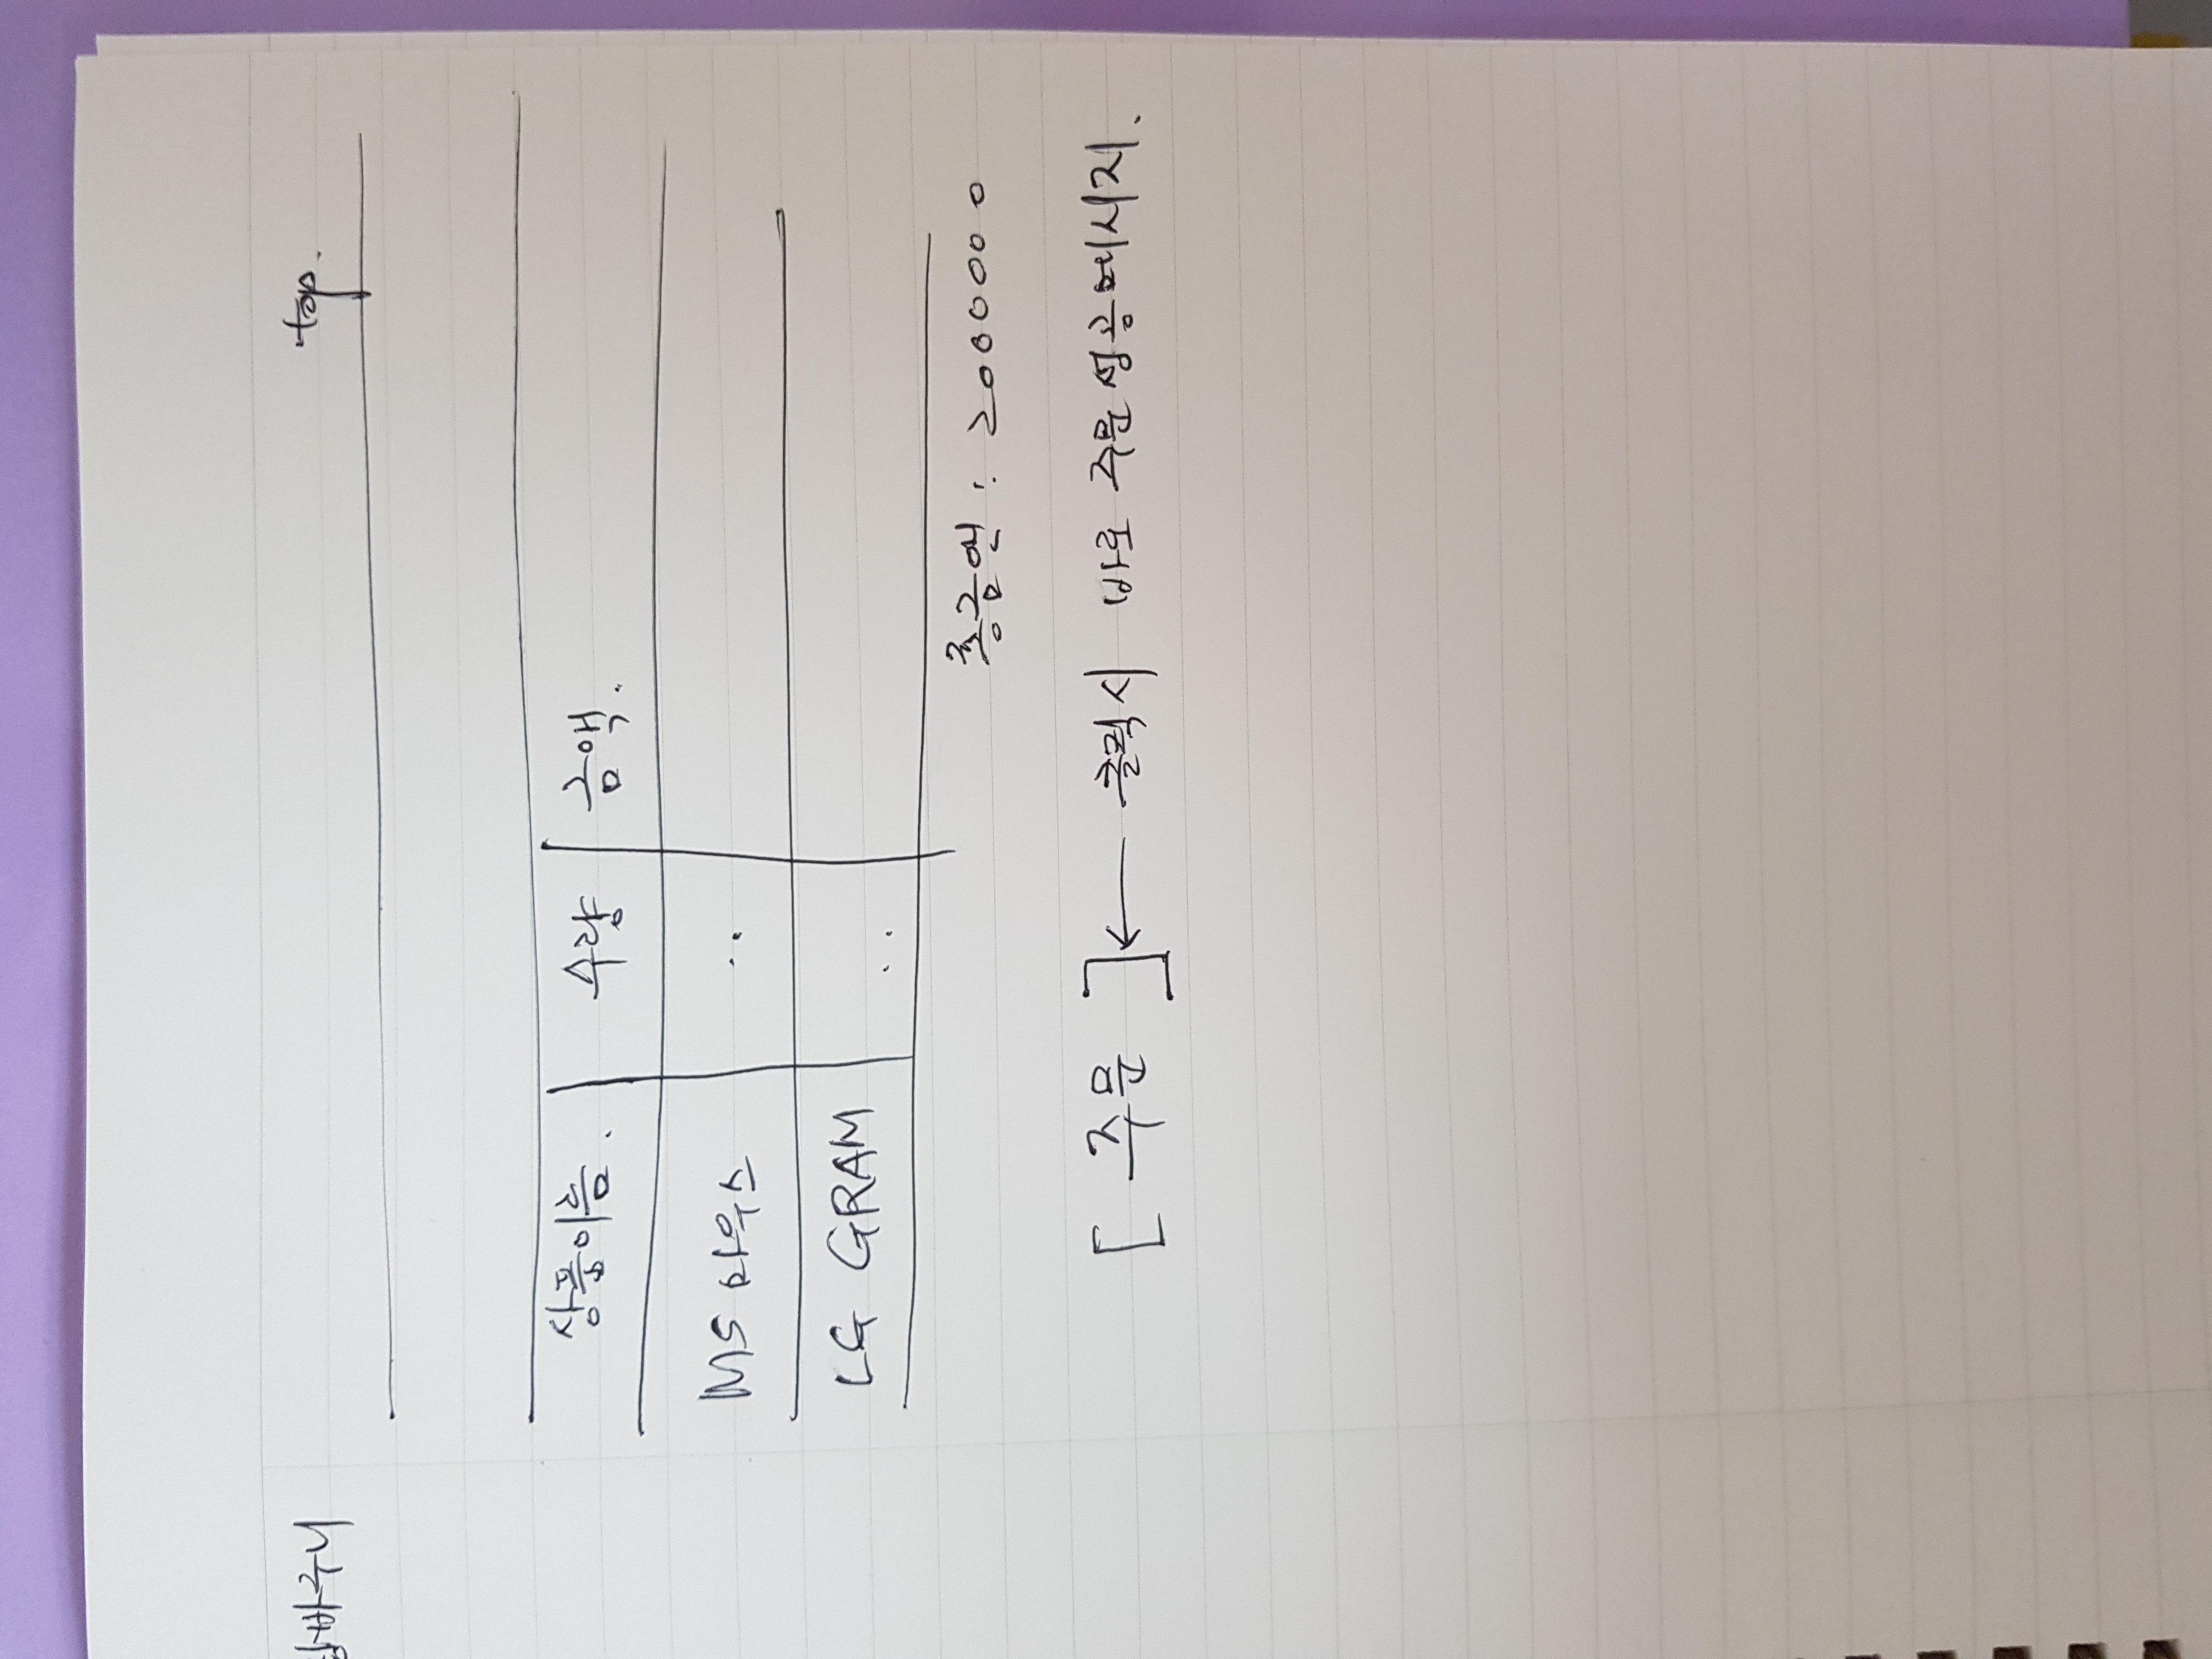 바구니
top.
상품이름. 수량 금액.
MS 마우스 ..
LG GRAM ..
총금액 : 2000000
[ 주문 ] ← 클릭시 바로 주문성공메시지.